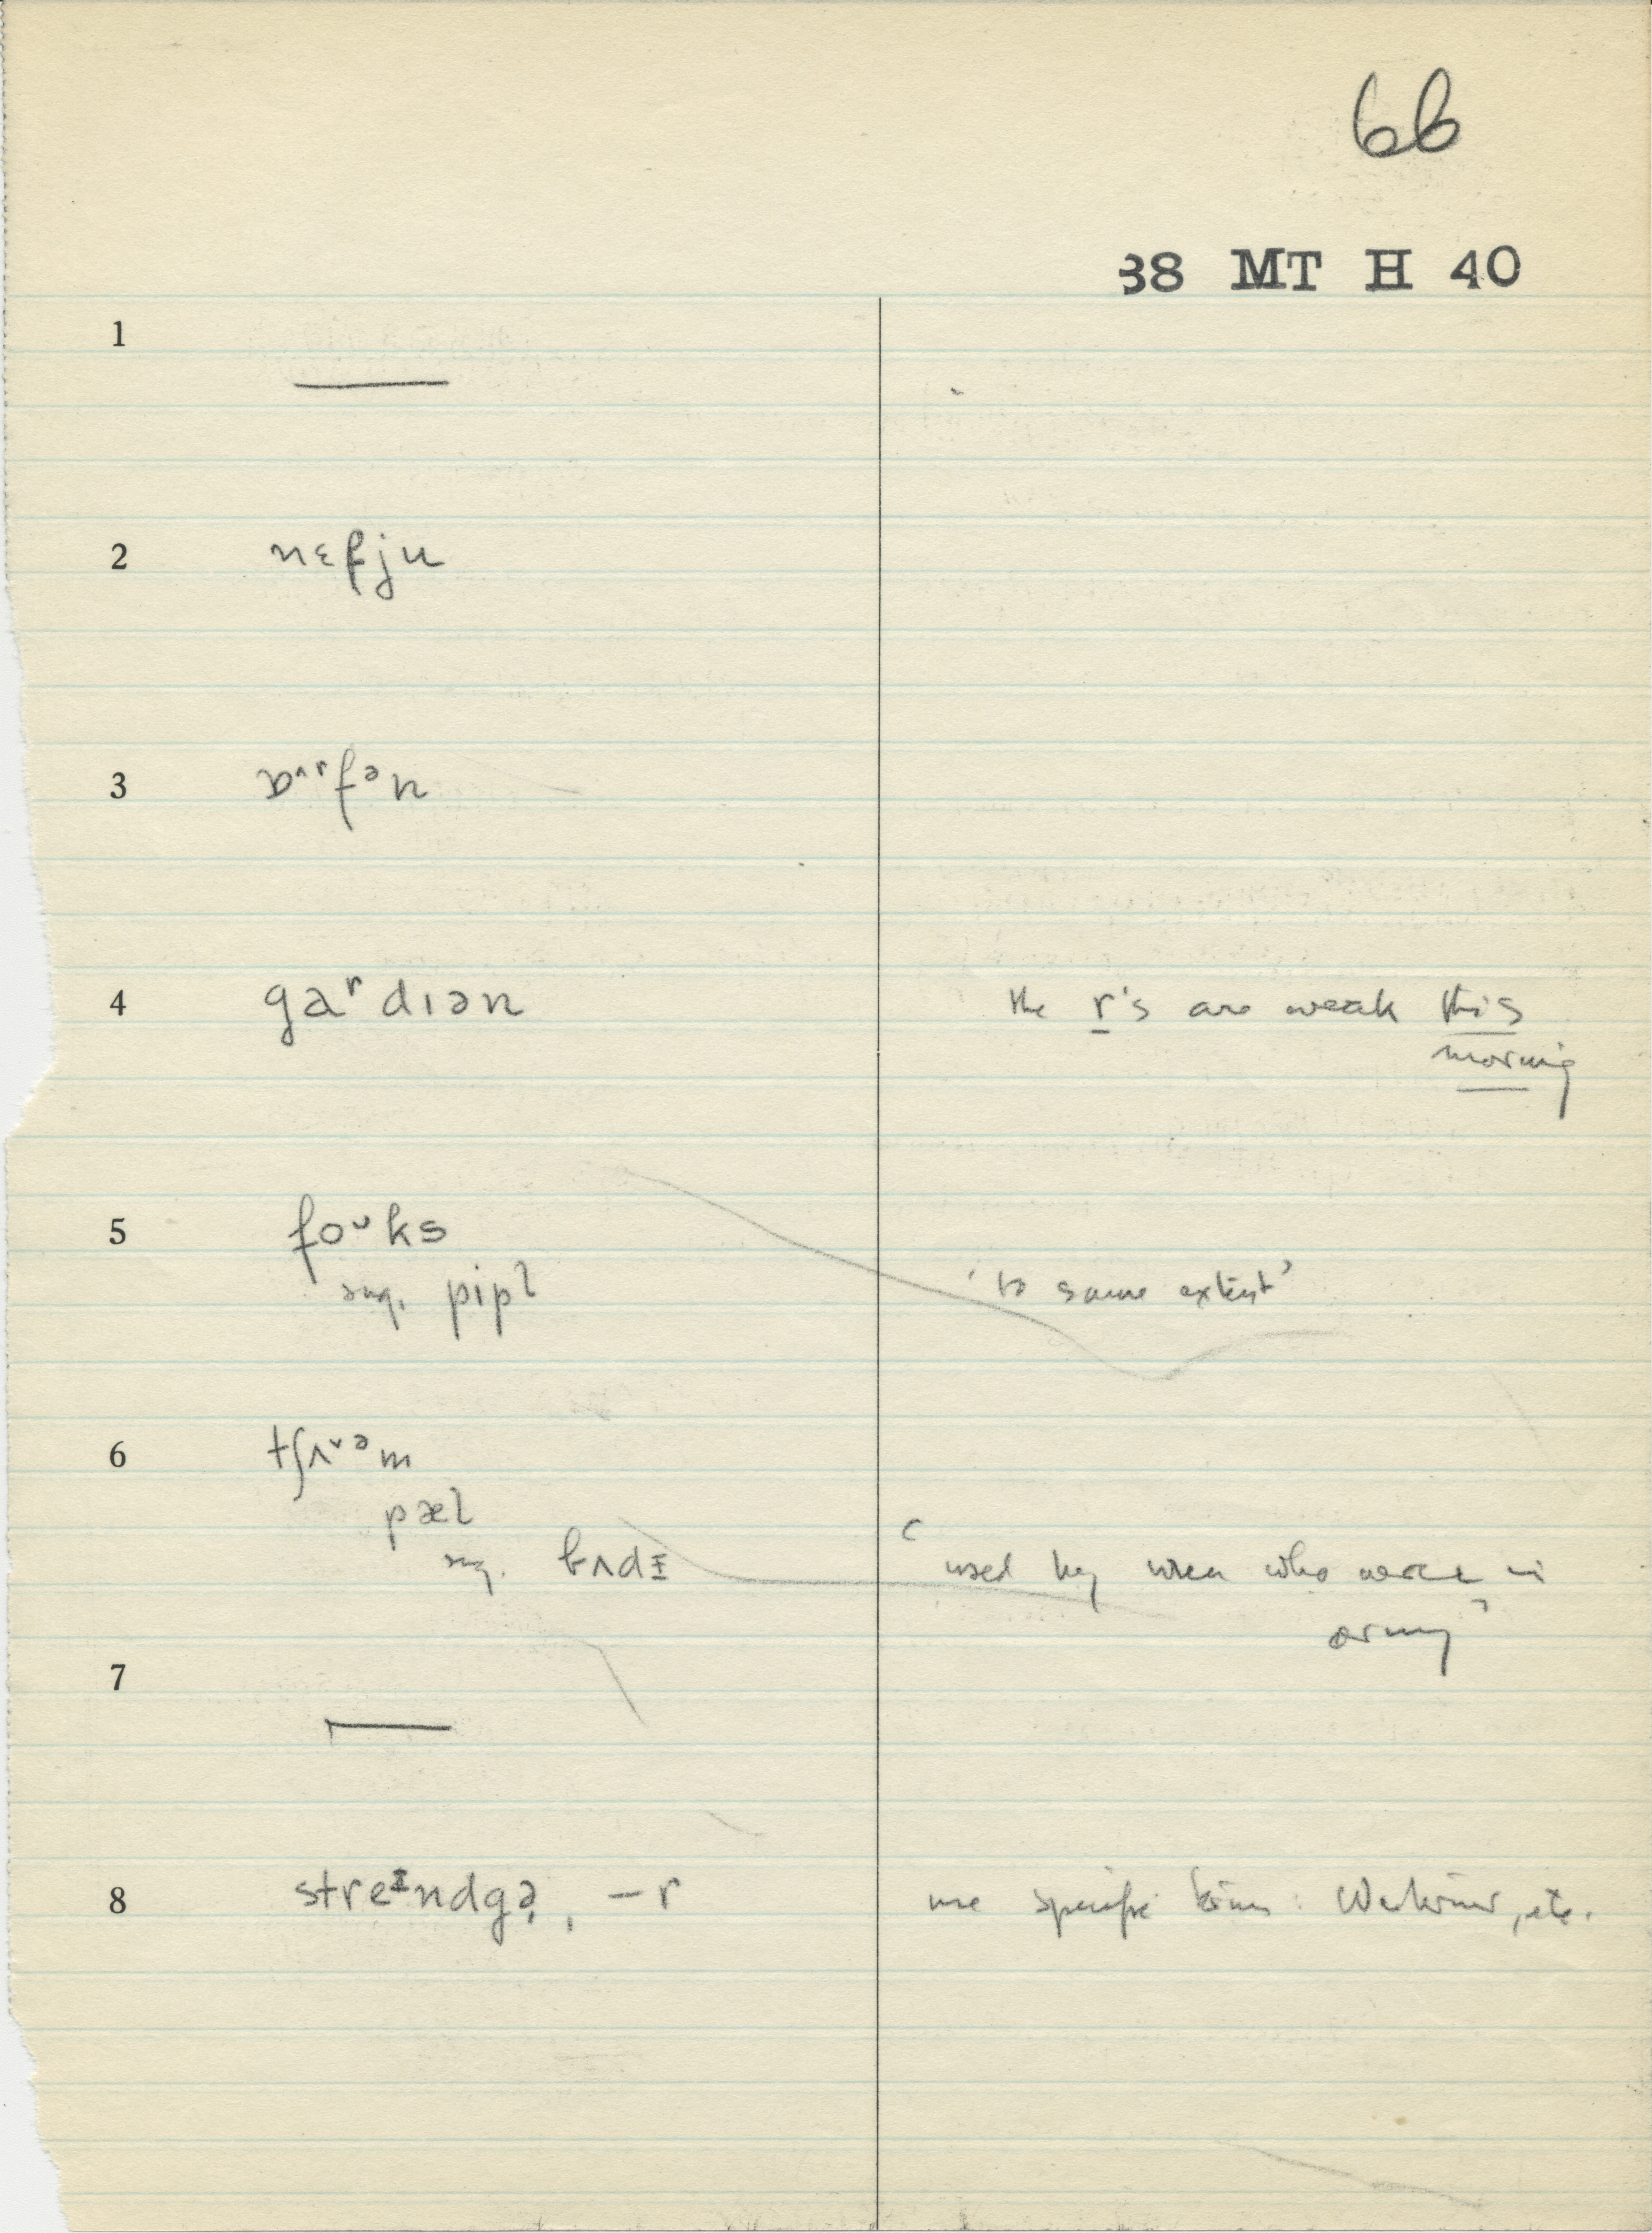 66
38 MT H 40
1 —
2 nɛfju
3
4 gaʳdɪən the r's are weak this
morning
5 foᶷks
sug. pipl 'to some extent'
6 tʃʌᵛᵊm
pæl
sug. bʌdɪ 'used by men who were in
army'
7 —
8 streᴵndgə, –r use specific terms: , etc.